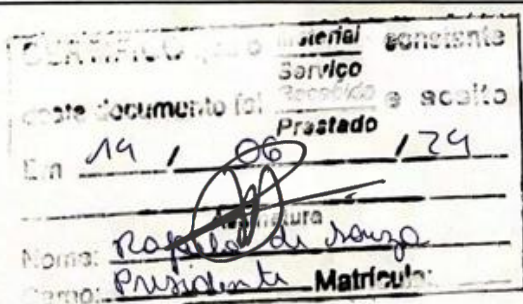 CERTIFICO que o Material constante
Serviço
deste documento foi Recebido e aceito
Prestado
Em 19 / 06 / 24
Assinatura
Nome: Rafaela de Souza
Cargo: Presidente Matrícula: